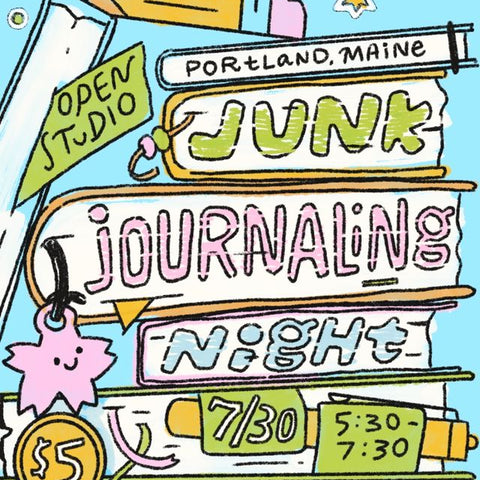 PORTLAND, MAINE
OPEN
STUDIO
JUNK
JOURNALING
NIGHT
7/30
5:30-
7:30
$5